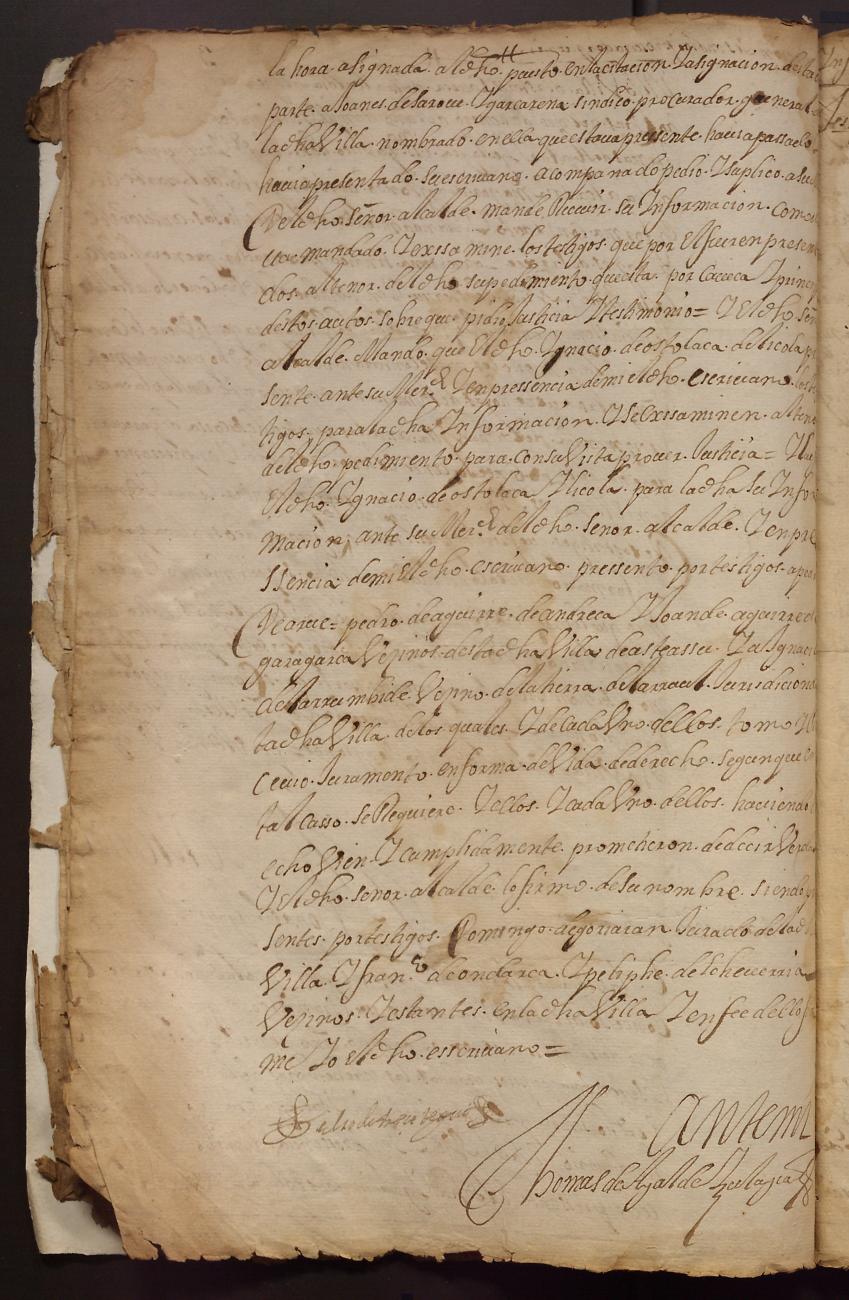 la hora asignada. al dho puesto en la citacion. Y asignacion. desta
parte. a Joanes. de Saroue. Ygarcarena sindico. procurador. general. d
la dha Villa. nombrado. en ella que estava pressente. havia passado.
havia presentado. su escrivano. acompañado pedio. Y suplico. a su
el dho. señor. alcalde. mande Recivir. su Informacion. como
mandado. Y exssamine. los testigos. que por el fueren presen
dos. al tenor. del dho su pedimiento. que esta. por caveca Y princi
destos. autos. sobre que. pidio Justicia Y testimonio = Y el dho. señ
alcalde. Mando. que el dho. Ygnacio. de ostolaca. de licola
sente. ante su Mer.d Y en pressencia de mi el dho. escrivano. los
tigos. para la dha Informacion. Y se exssaminen. al teno
del dho. pedimiento. para. con su Vista prover. Justicia =
el dho. Ygnacio. de ostolaca Y licola. para la dha su Infor
macion; ante su Mer.d del dho. señor. alcalde. Y en pre
ssencia de mi el dho. escrivano. pressento. por testigos.
= pedro. de aguirre. de andreca Y Joan de. aguirre
garagarca Vezinos. desta dha Villa. de asteassu. Y a Ignaci
de larrumbide. Vezino. de la tierra. de larraul. Jurisdicion
ta dha Villa. de los quales. Y de cada Vno. dellos. tomo Y
cevio. Juramento. en forma. de Vida. de derecho. segun que
tal casso. se Requiere. Y ellos. Y cada Vno. dellos. haviendo
echo Vien. Y cumplidamente. prometieron. de decir Verda
Y el dho. señor. alcalde. lo firmo. de su nombre. siendo
sentes. por testigos. Domingo. de goriaran Jurado. de la
Villa. Y fran.co de ondarca. Y pheliphe. de Echeverria
Vezinos. Y estantes. en la dha Villa Y en fee dello
me Yo el dho. esscrivano =
Ante mi
Thomas de Ygalde